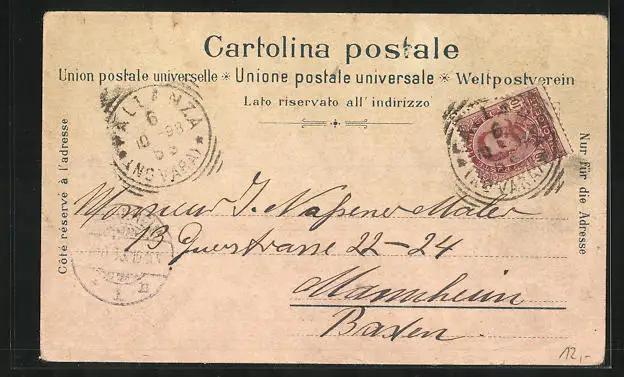 Cartolina postale
Union postale universelle * Unione postale universale * Weltpostverein
Lato riservato all' indirizzo
Côté réservé à l'adresse
Nur für die Adresse
PALLANZA
6
10 -98
5 S
(NOVARA)
Monsieur J. Nassener Maler
13 Querstrasse 22-24
Mannheim
Baden
12,-